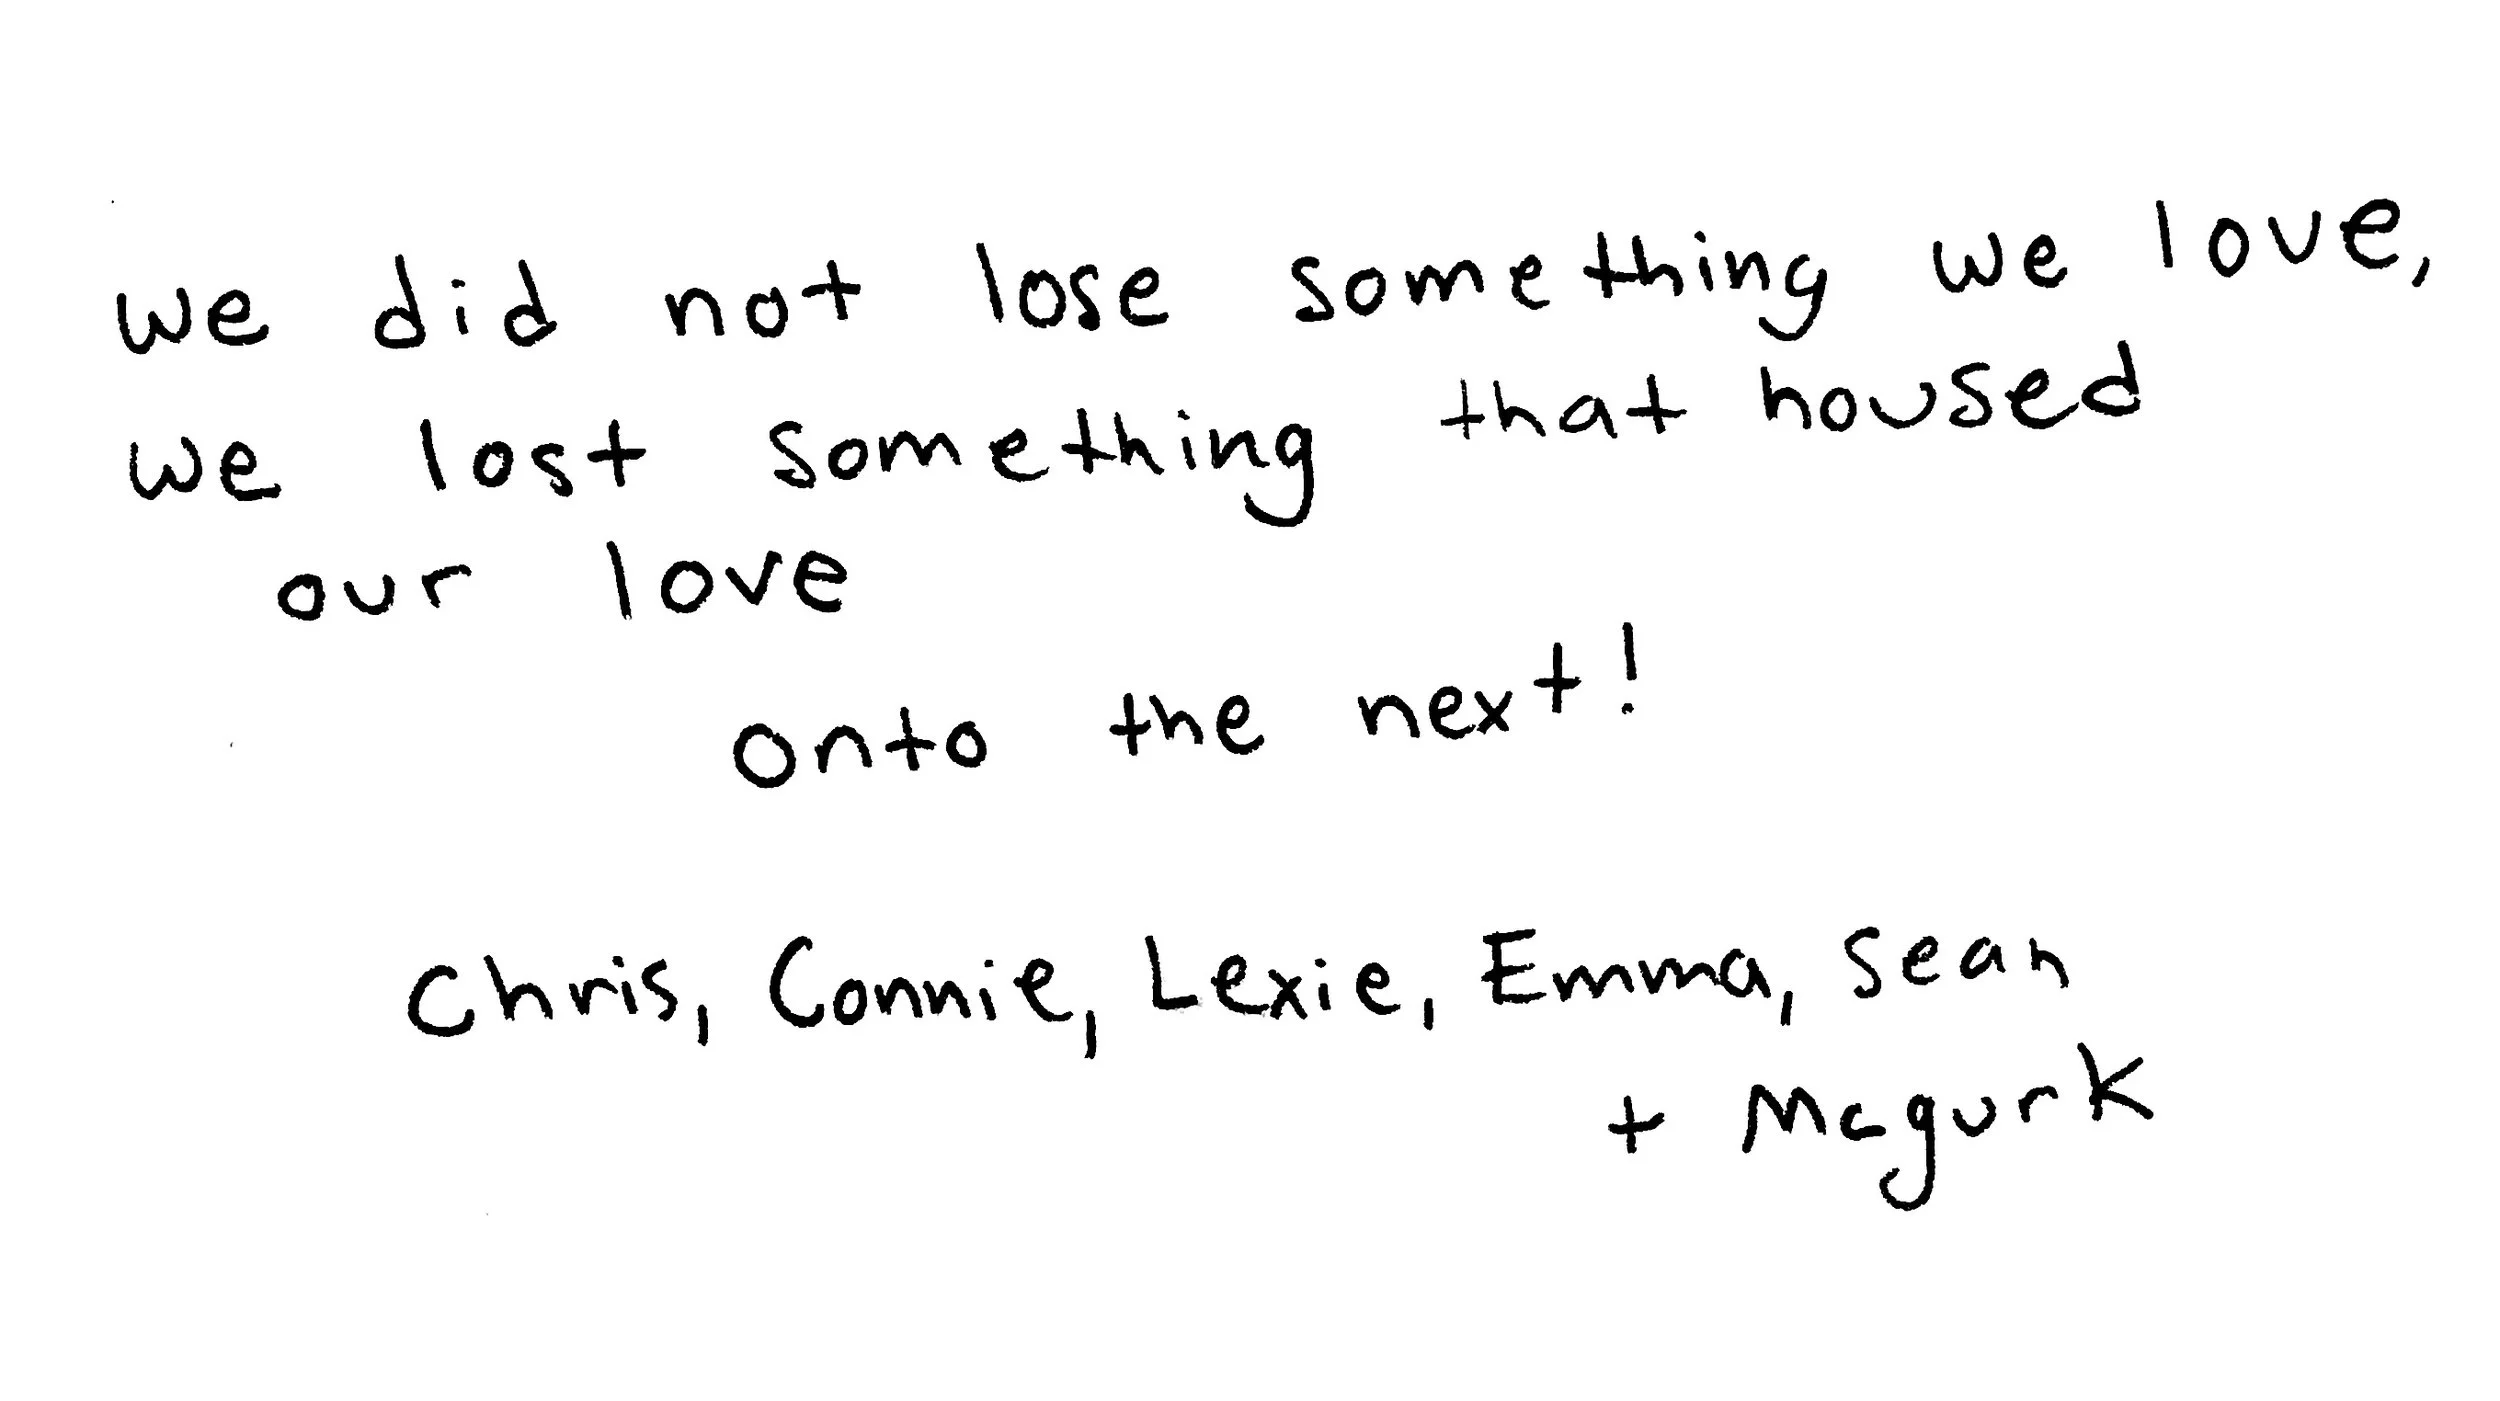 we did not lose something we love,
we lost something that housed
our love
onto the next!
Chris, Connie, Lexie, Emma, Sean
+ Mcgurk